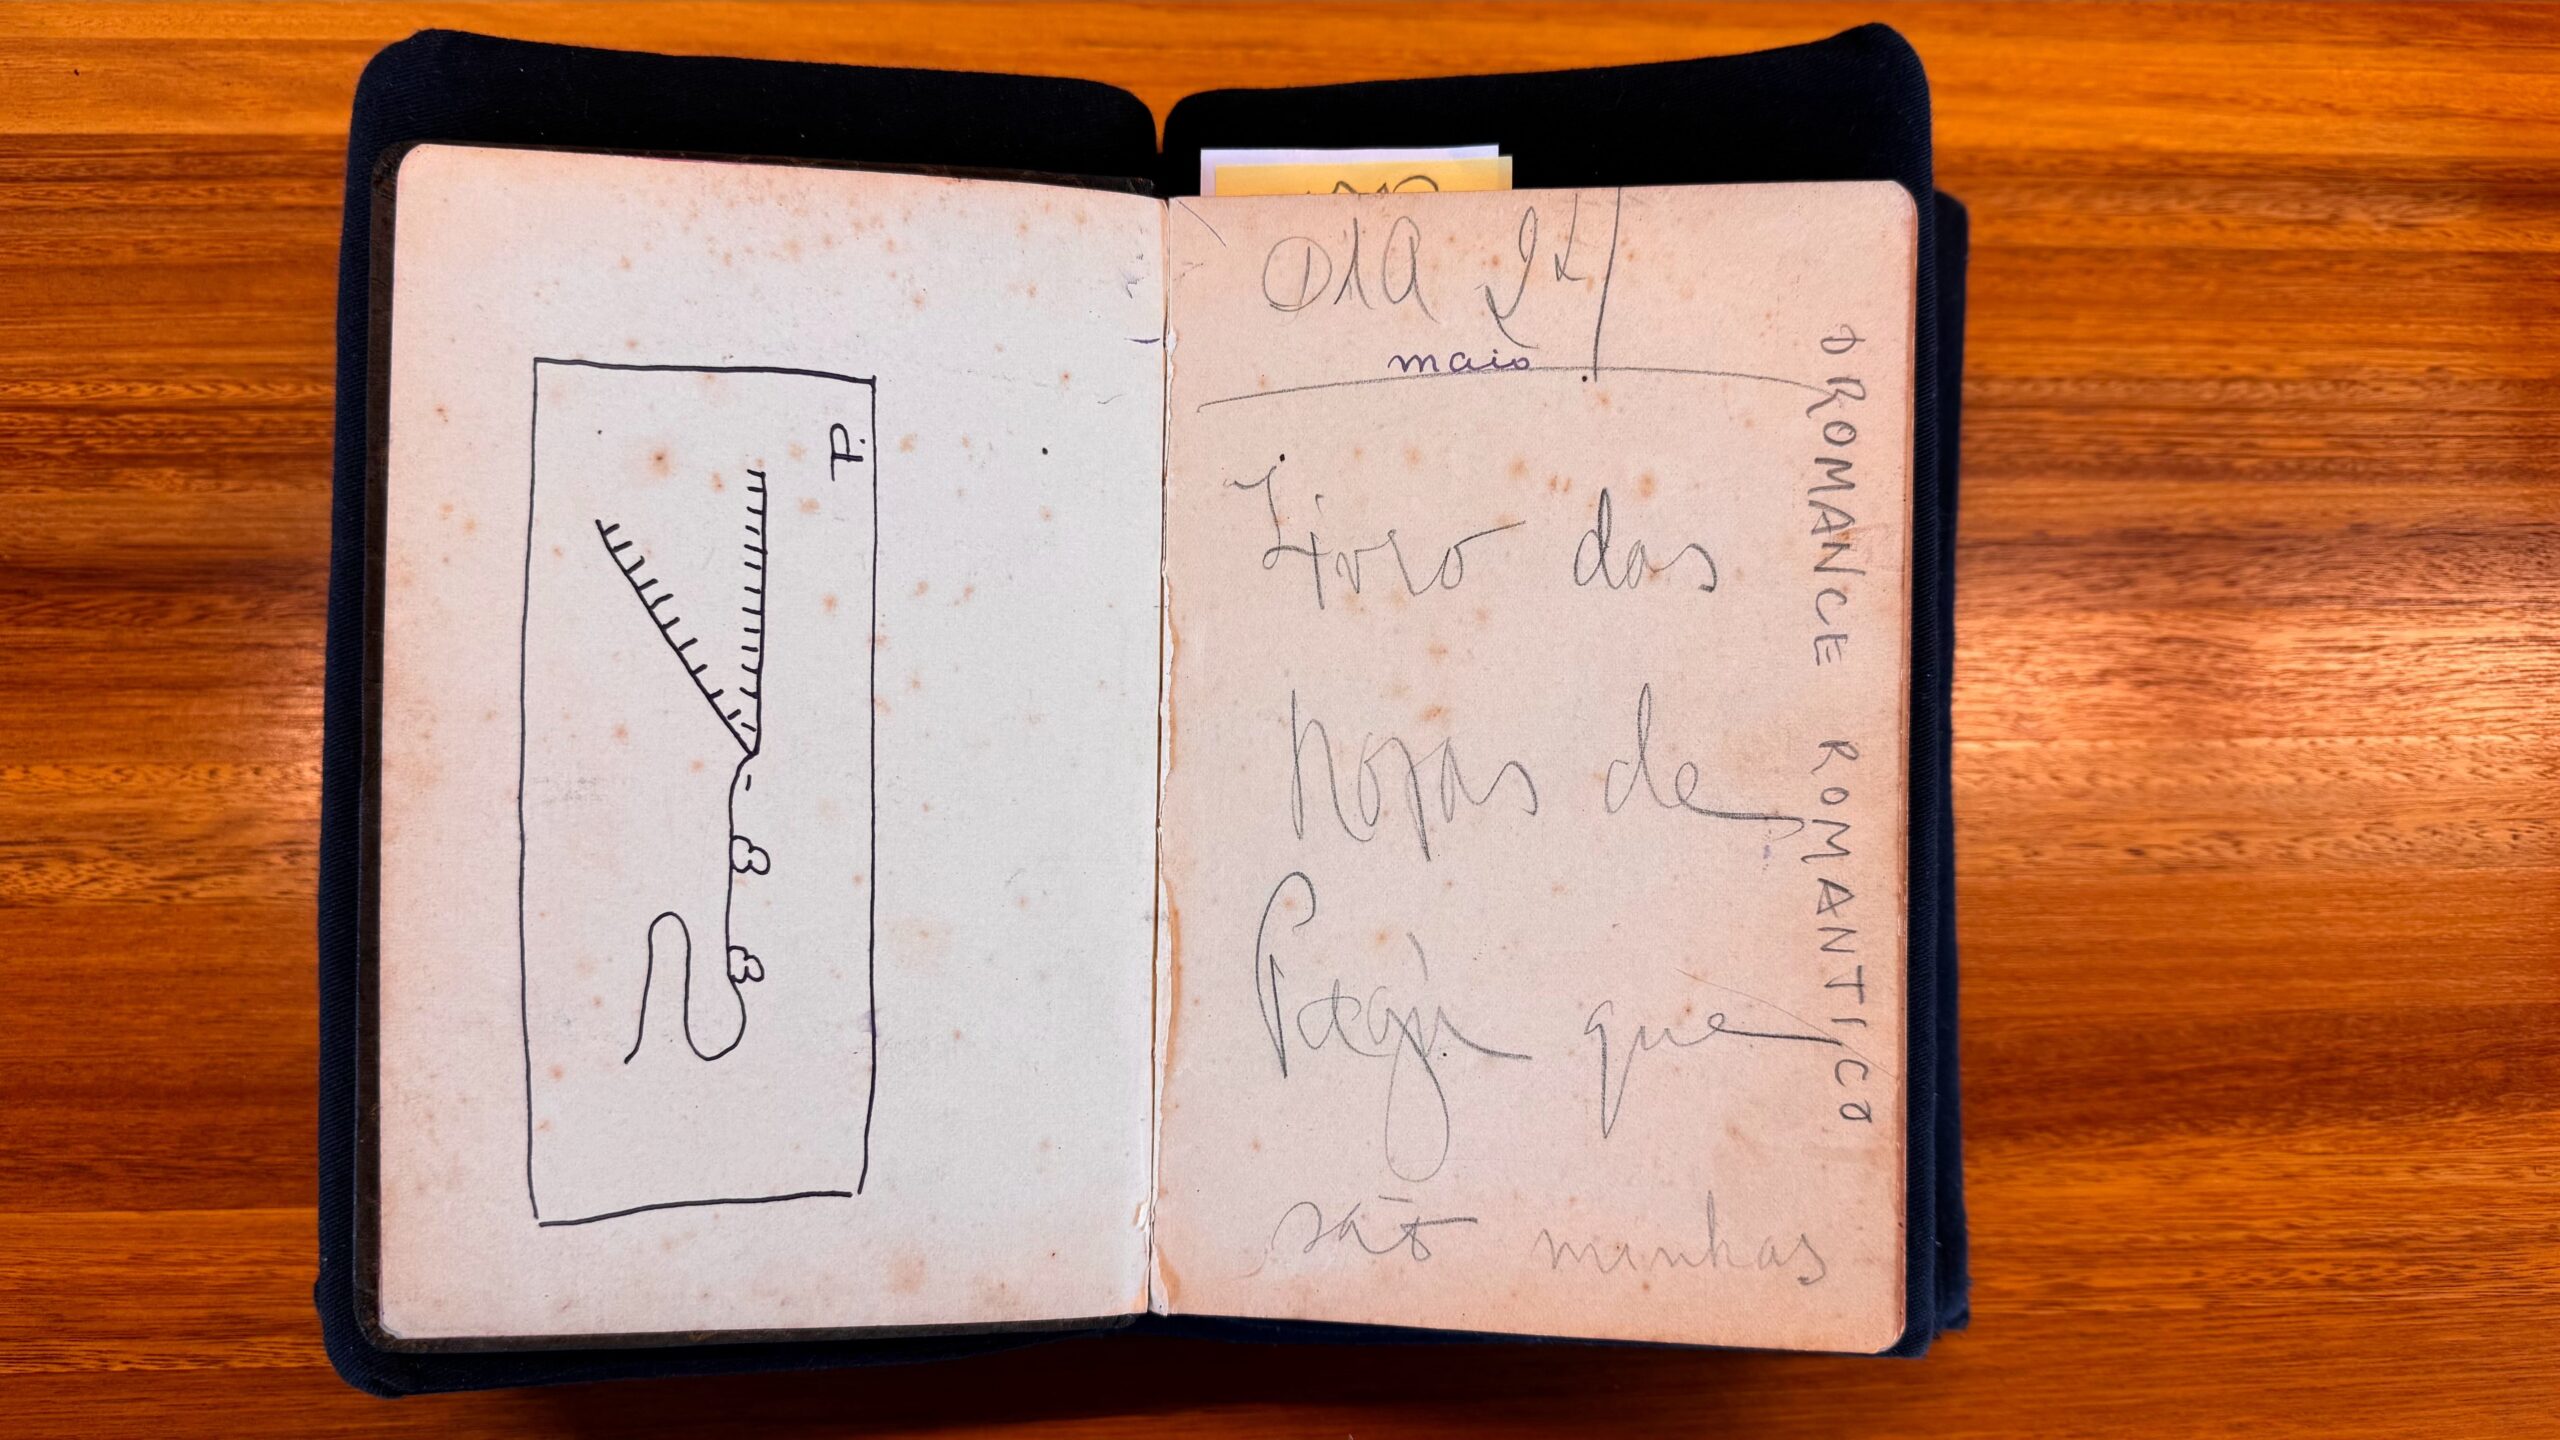 DIA 24
maio
Livro das
horas de
Pagu que
são minhas
O ROMANCE ROMANTICO